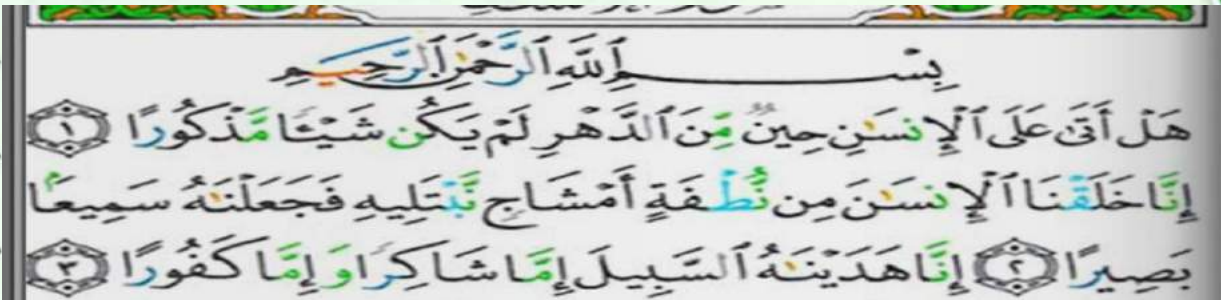 بِسْمِ ٱللَّهِ ٱلرَّحْمَٰنِ ٱلرَّحِيمِ
هَلْ أَتَىٰ عَلَى ٱلْإِنسَٰنِ حِينٌ مِّنَ ٱلدَّهْرِ لَمْ يَكُن شَيْـًٔا مَّذْكُورًا ١
إِنَّا خَلَقْنَا ٱلْإِنسَٰنَ مِن نُّطْفَةٍ أَمْشَاجٍ نَّبْتَلِيهِ فَجَعَلْنَٰهُ سَمِيعًۢا
بَصِيرًا ٢ إِنَّا هَدَيْنَٰهُ ٱلسَّبِيلَ إِمَّا شَاكِرًا وَإِمَّا كَفُورًا ٣